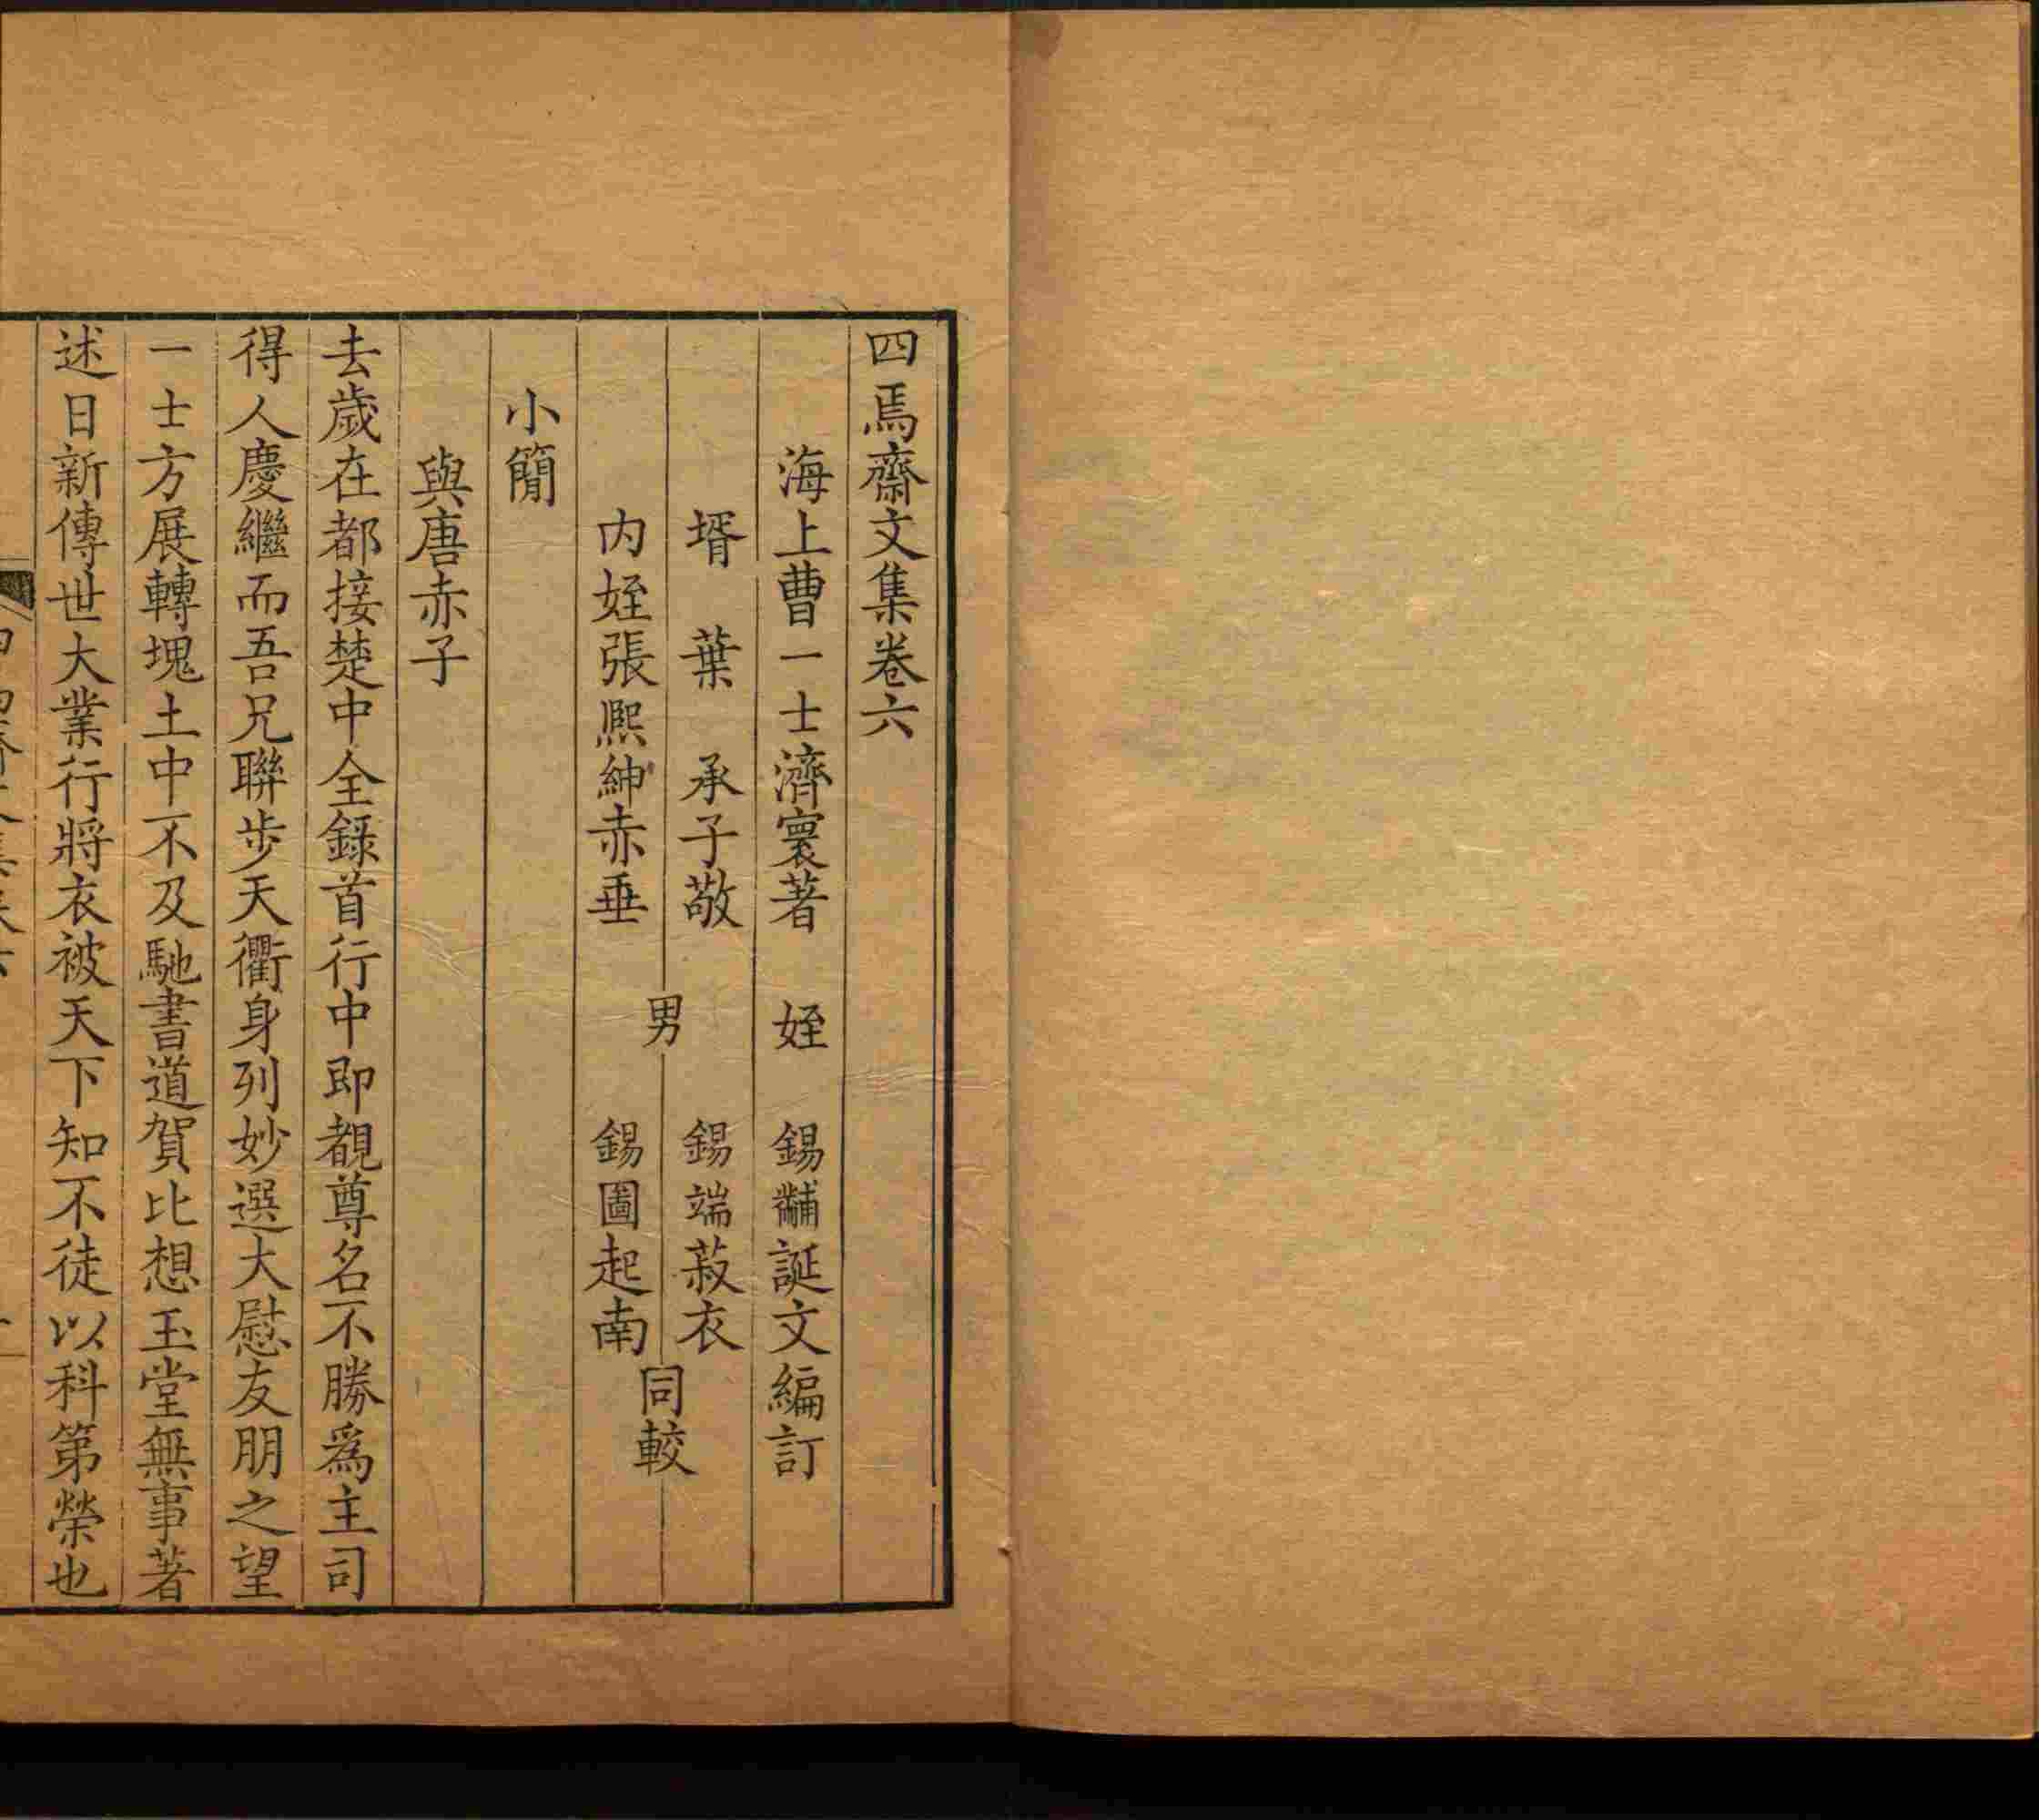 四焉齋文集卷六
海上曹一士濟寰著　姪　錫黼誕文編訂
壻　葉　承子敬　男　錫端菽衣　同較
内姪張熙紳赤垂　錫圖起南
小簡
與唐赤子
去歲在都接楚中全錄首行中即覩尊名不勝爲主司
得人慶繼而吾兄聯步天衢身列妙選大慰友朋之望
一士方展轉塊土中不及馳書道賀比想玉堂無事著
述日新傳世大業行將衣被天下知不徒以科第榮也